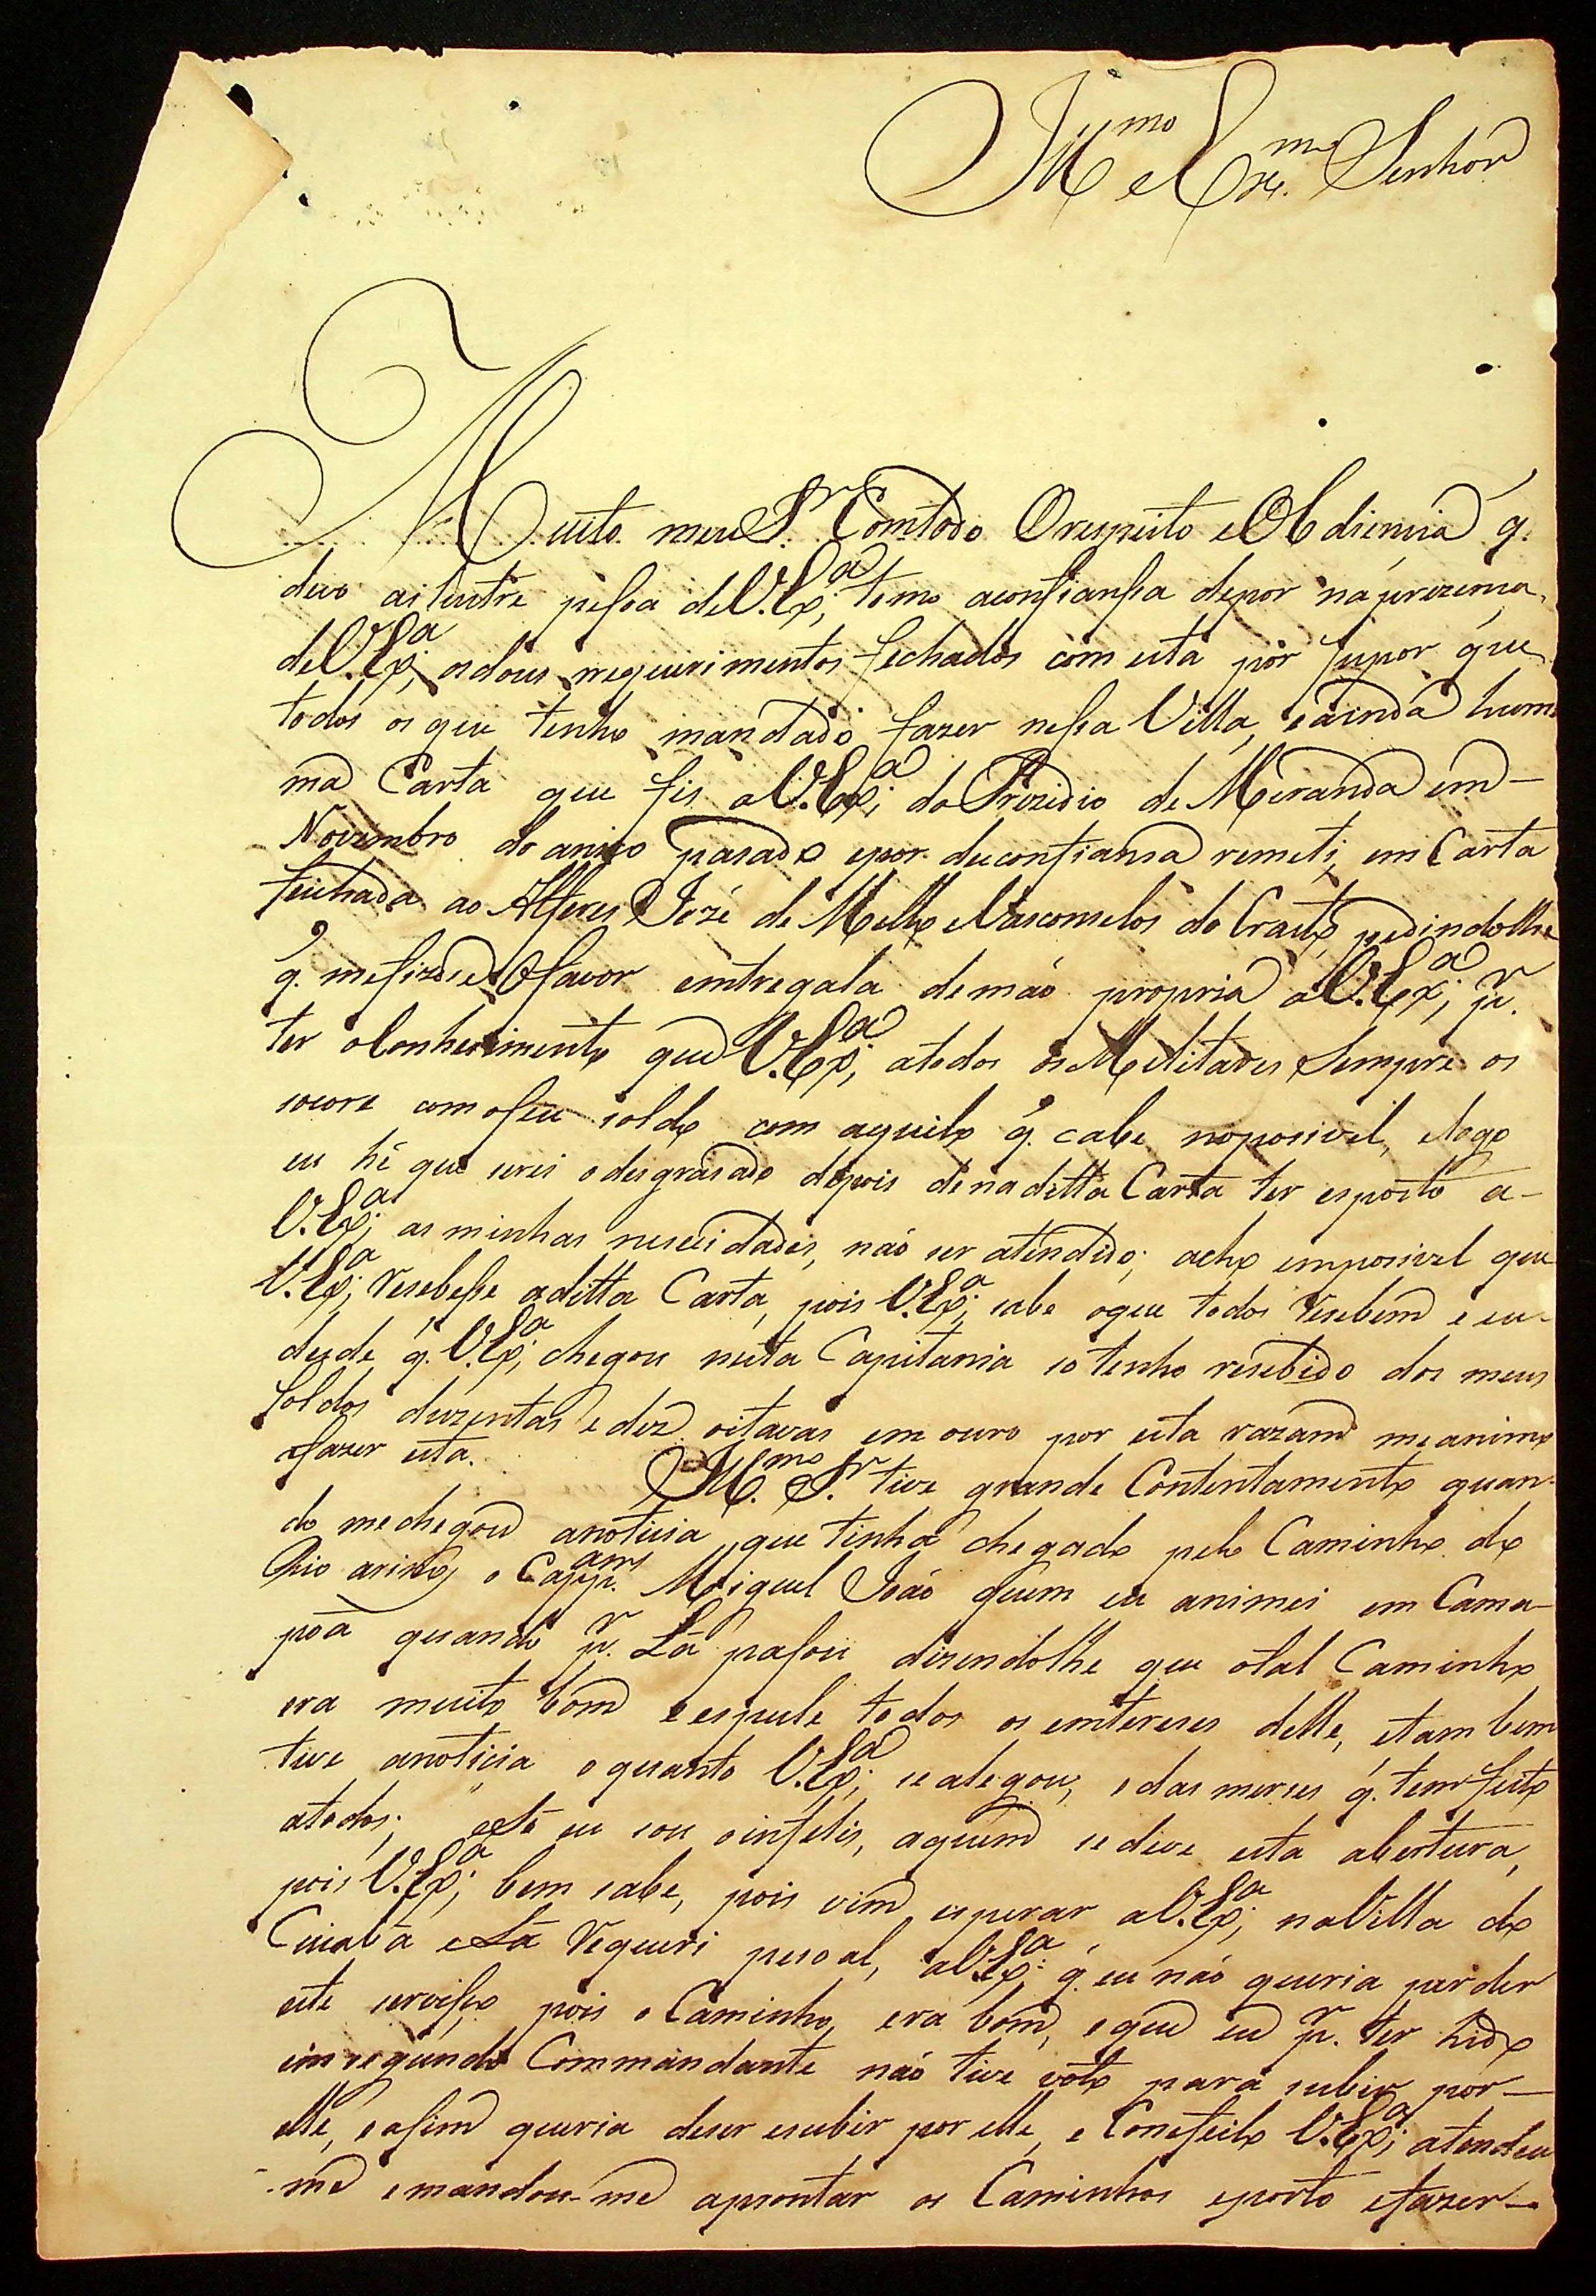 Ill.mo e Ex.mo Senhor
Muito meu S.r Comtodo Orespeito eObdiencia q.
devo ailustre pessoa deV.Ex.a; tomo aconfiansa depor na prezença
deV.Ex.a; os dous rrequerimentos fechados com esta por supor que
todos os que tenho mandado fazer nessa Villa, eainda hum
ma Carta que fis aV.Ex.a; do Prezidio de Miranda em
Novembro do anno pasado epor desconfiansa remeti, em Carta
feichada ao Alferes Jozé de Mello eVasconselos do Crauto pedindolhe
q. mefizese Ofavor emtregala demão propria aV.Ex.a; p.r
ter oConhesimento que V.Ex.a; atodos os Melitares Sempre os
socore comoseu soldo com aquilo q. cabe noposivel, elogo
eu hé que serei odesgrasado depois denaditta Carta ter esposto a-
V.Ex.a; as minhas nesesidades, não ser atendido; acho emposivel que
V.Ex.a; resebesse aditta Carta, pois V.Ex.a; sabe oque todos resebem e eu-
desde q. V.Ex.a; chegou nesta Capitania só tenho resebido dos meus
soldos duzentas e dez oitavas em ouro por esta razam meanimo
afazer esta. Ill.mo S.r tive grande Contentamento quan-
do mechegou anoticia que tinha chegado pelo Caminho do
Rio arinos o Cap.am Miguel João quem eu animei em Cama-
poã quando p.r Lá pasou dizendolhe que otal Caminho
era muito bom eespuslle todos os emtereses delle, etambem
tive anoticia oquanto V.Ex.a; sealegou; edas merses q. tem feito
atodos; eSó eu sou oinfelis, aquem sedeve esta abertura,
pois V.Ex.a; bem sabe, pois vim esperar aV.Ex.a; naVilla do
Cuiabá eLá Requeri pesoal, aV.Ex.a; q. eu não queria parder
este servisso, pois oCaminho, era bom, eque eu p.r ter hido
em segundo Commandante não tive voto para subir por-
elle, easim queria deser esubir por elle, e Comefeito V.Ex.a; atendeu
-me emandou-me aprontar os Caminhos eporto efazer-